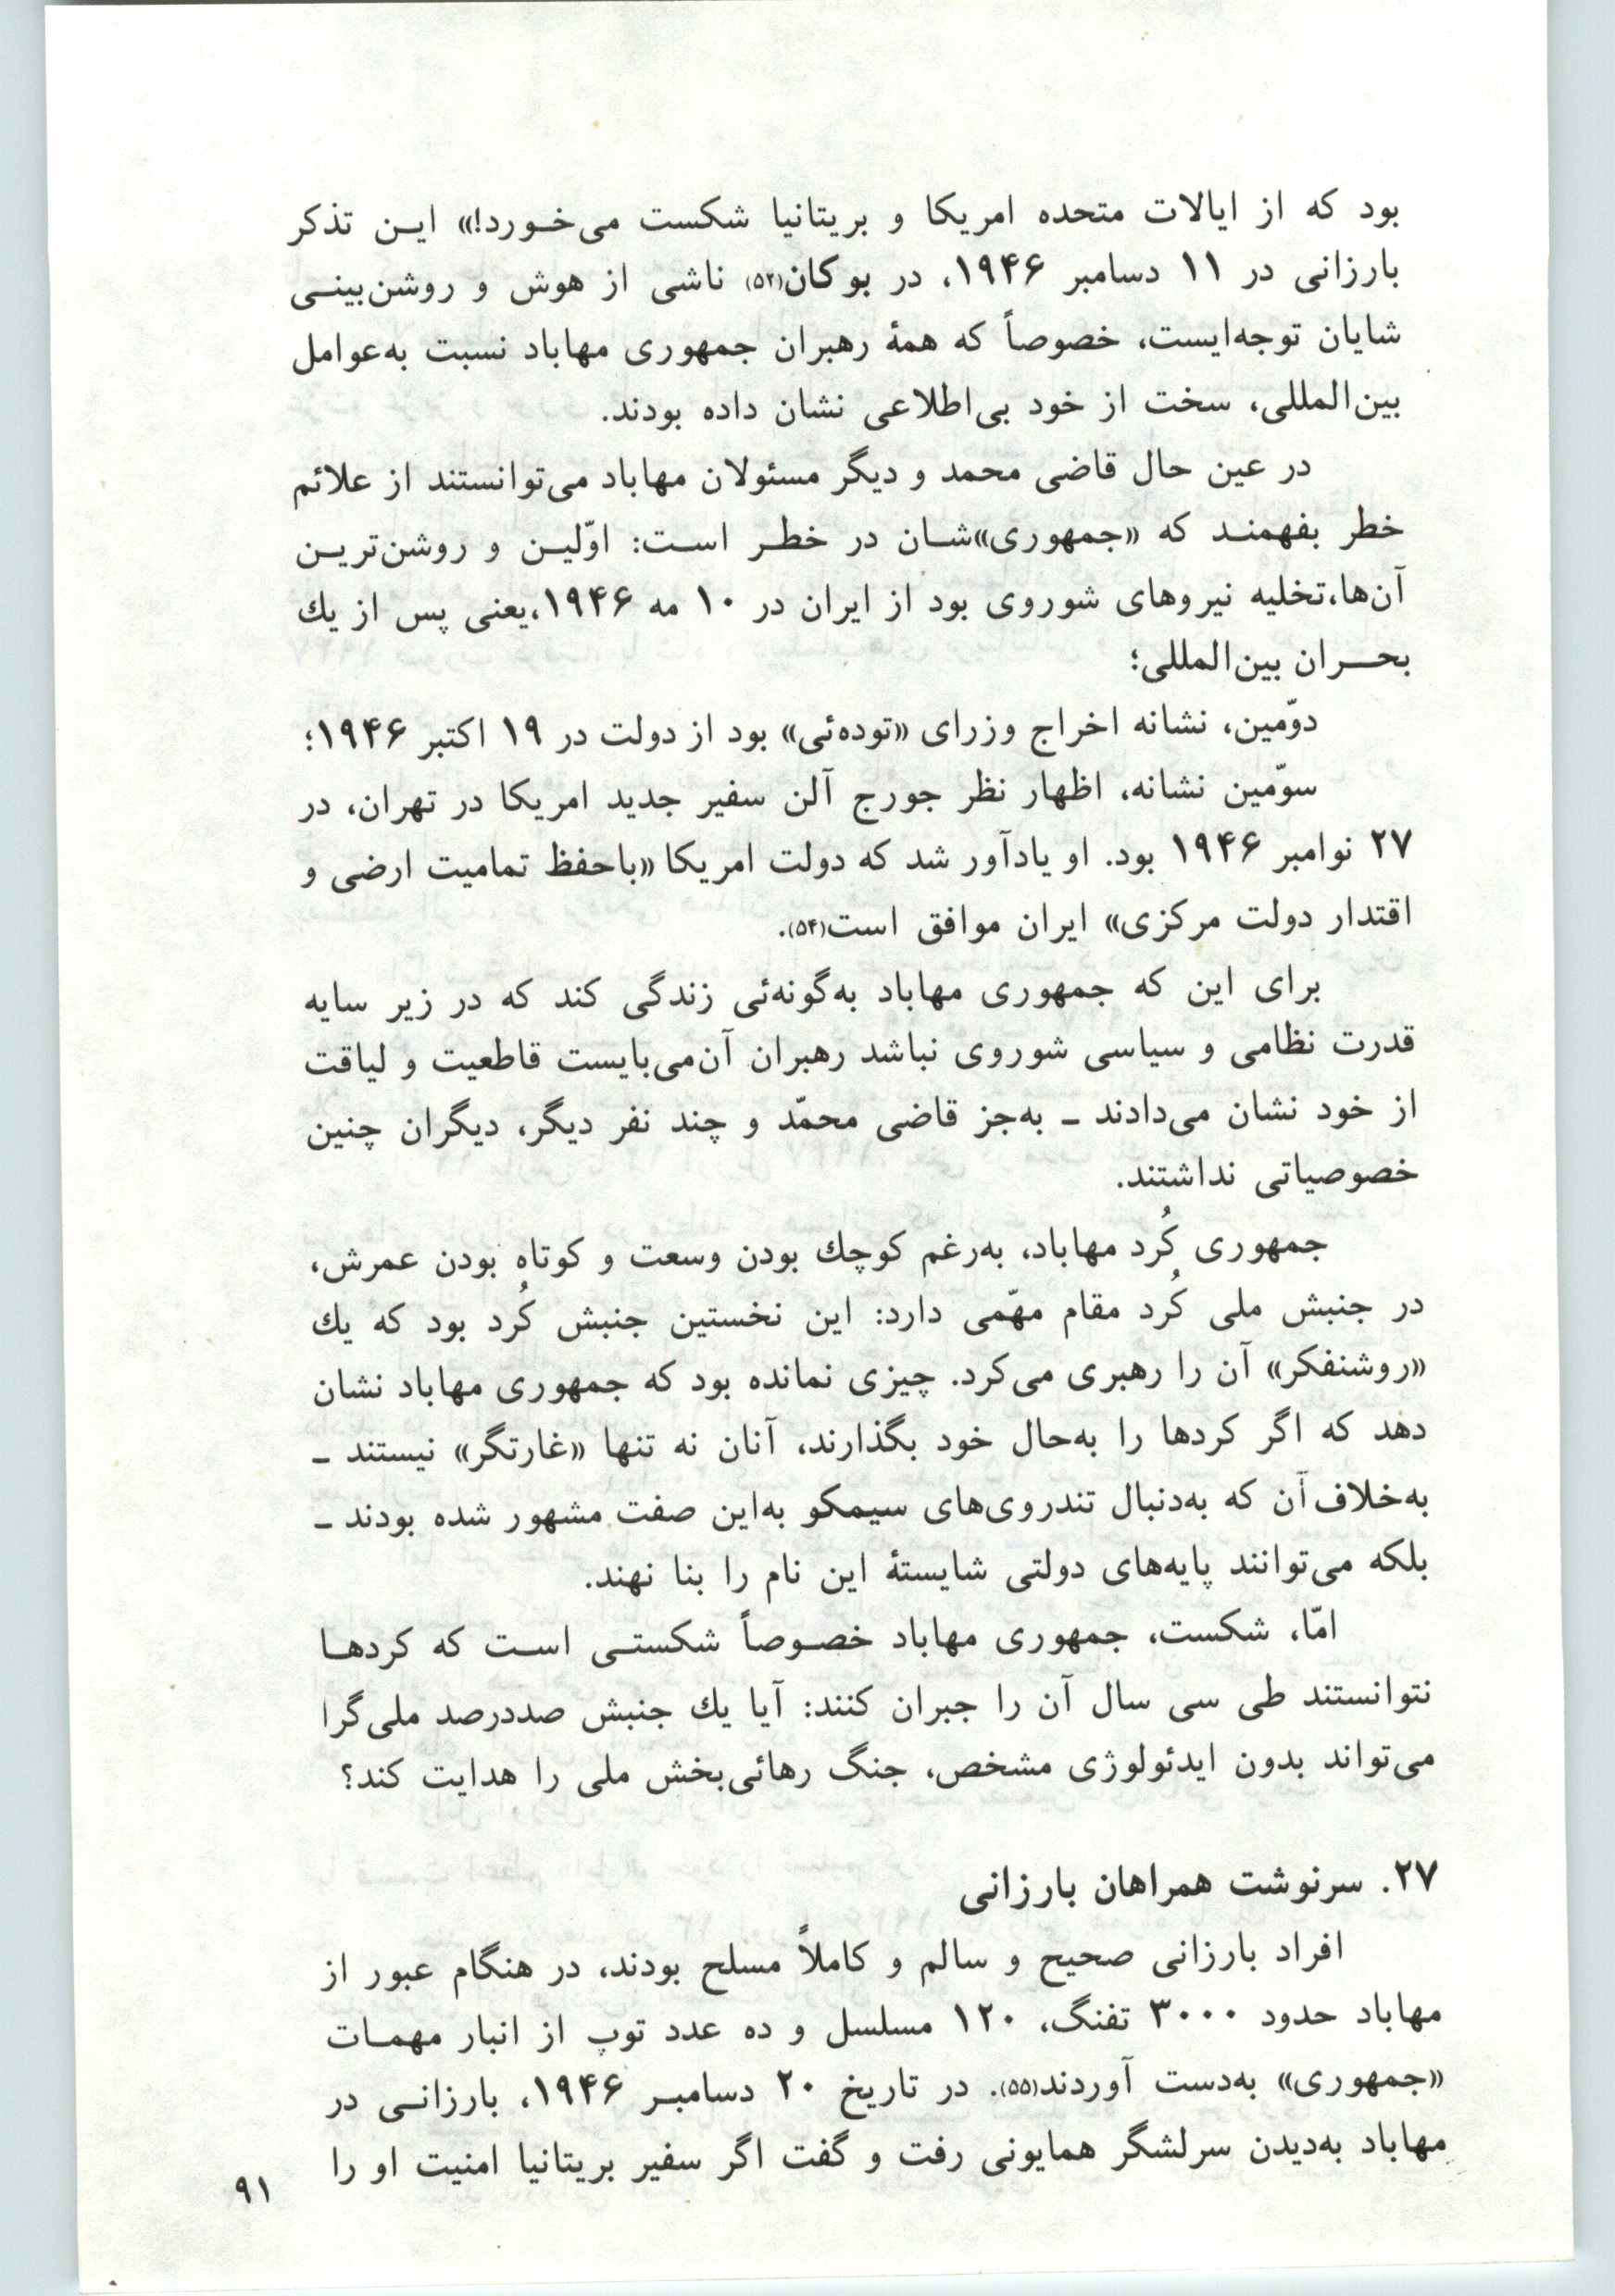 بود که از ایالات متحده امریکا و بریتانیا شکست می‌خورد!» این تذکر
بارزانی در ۱۱ دسامبر ۱۹۴۶، در بوکان(۵۳) ناشی از هوش و روشن‌بینی
شایان توجه‌ایست، خصوصاً که همهٔ رهبران جمهوری مهاباد نسبت به‌عوامل
بین‌المللی، سخت از خود بی‌اطلاعی نشان داده بودند.
در عین حال قاضی محمد و دیگر مسئولان مهاباد می‌توانستند از علائم
خطر بفهمند که «جمهوری»شان در خطر است: اوّلین و روشن‌ترین
آن‌ها،تخلیه نیروهای شوروی بود از ایران در ۱۰ مه ۱۹۴۶،یعنی پس از یك
بحران بین‌المللی؛
دوّمین، نشانه اخراج وزرای «توده‌ئی» بود از دولت در ۱۹ اکتبر ۱۹۴۶؛
سوّمین نشانه، اظهار نظر جورج آلن سفیر جدید امریکا در تهران، در
۲۷ نوامبر ۱۹۴۶ بود. او یادآور شد که دولت امریکا «باحفظ تمامیت ارضی و
اقتدار دولت مرکزی» ایران موافق است(۵۴).
برای این که جمهوری مهاباد به‌گونه‌ئی زندگی کند که در زیر سایه
قدرت نظامی و سیاسی شوروی نباشد رهبران آن‌می‌بایست قاطعیت و لیاقت
از خود نشان می‌دادند ـ به‌جز قاضی محمّد و چند نفر دیگر، دیگران چنین
خصوصیاتی نداشتند.
جمهوری کُرد مهاباد، به‌رغم کوچك بودن وسعت و کوتاه بودن عمرش،
در جنبش ملی کُرد مقام مهّمی دارد: این نخستین جنبش کُرد بود که یك
«روشنفکر» آن را رهبری می‌کرد. چیزی نمانده بود که جمهوری مهاباد نشان
دهد که اگر کردها را به‌حال خود بگذارند، آنان نه تنها «غارتگر» نیستند ـ
به‌خلاف آن که به‌دنبال تندروی‌های سیمکو به‌این صفت مشهور شده بودند ـ
بلکه می‌توانند پایه‌های دولتی شایستهٔ این نام را بنا نهند.
امّا، شکست، جمهوری مهاباد خصوصاً شکستی است که کردها
نتوانستند طی سی سال آن را جبران کنند: آیا یك جنبش صددرصد ملی‌گرا
می‌تواند بدون ایدئولوژی مشخص، جنگ رهائی‌بخش ملی را هدایت کند؟
۲۷. سرنوشت همراهان بارزانی
افراد بارزانی صحیح و سالم و کاملاً مسلح بودند، در هنگام عبور از
مهاباد حدود ۳۰۰۰ تفنگ، ۱۲۰ مسلسل و ده عدد توپ از انبار مهمات
«جمهوری» به‌دست آوردند(۵۵). در تاریخ ۲۰ دسامبر ۱۹۴۶، بارزانی در
مهاباد به‌دیدن سرلشگر همایونی رفت و گفت اگر سفیر بریتانیا امنیت او را
۹۱